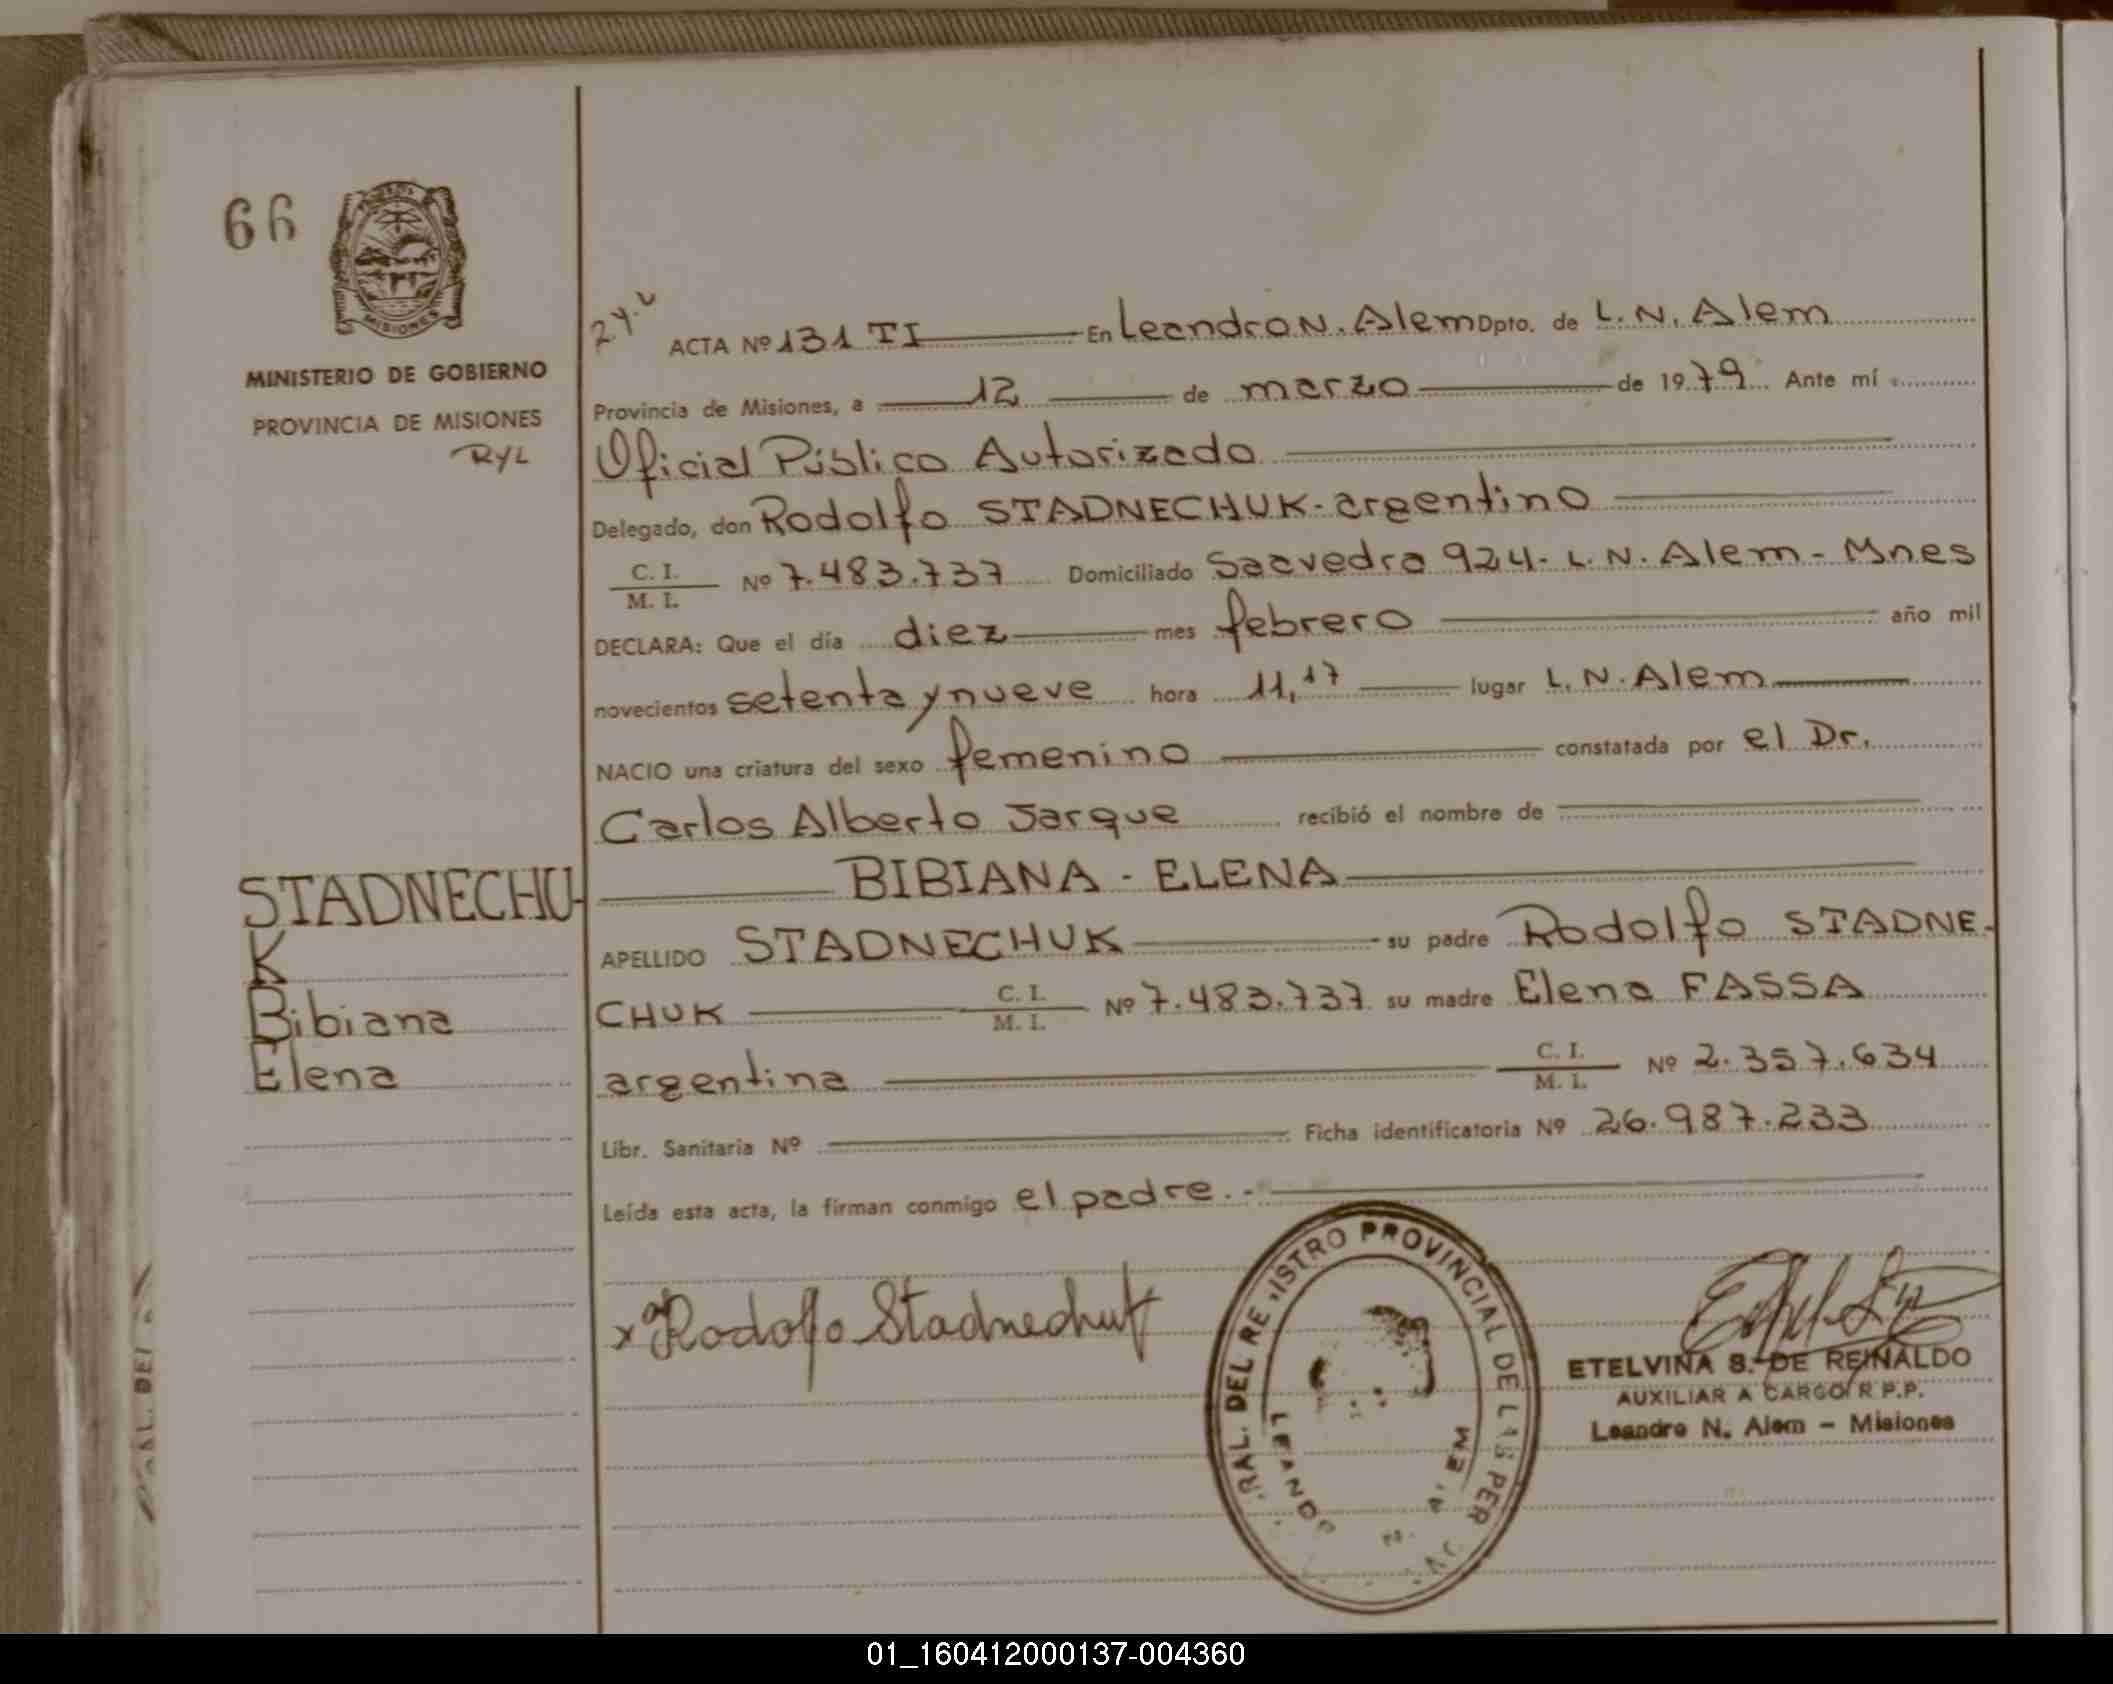 66
MISIONES
MINISTERIO DE GOBIERNO
PROVINCIA DE MISIONES
RyL
ACTA Nº 131 TI En Leandro N. Alem Dpto. de L. N. Alem
Provincia de Misiones, a 12 de marzo de 1979 Ante mí
Oficial Público Autorizado
Delegado, don Rodolfo STADNECHUK - argentino
C. I.
M. I. Nº 7.483.737 Domiciliado Saavedra 924 - L. N. Alem - Mnes
DECLARA: Que el día diez mes febrero año mil
novecientos setenta y nueve hora 11,17 lugar L. N. Alem
NACIO una criatura del sexo femenino constatada por el Dr.
Carlos Alberto Jarque recibió el nombre de
BIBIANA - ELENA
APELLIDO STADNECHUK su padre Rodolfo STADNE-
CHUK C. I.
M. I. Nº 7.483.737 su madre Elena FASSA
argentina C. I.
M. I. Nº 2.357.634
Libr. Sanitaria Nº Ficha identificatoria Nº 26.987.233
Leída esta acta, la firman conmigo el padre.-
STADNECHU-
K
Bibiana
Elena
x Rodolfo Stadnechuk
ISTRO PROVINCIAL DE
RAL. DEL RE
ETELVINA S. DE REINALDO
AUXILIAR A CARGO R P.P.
Leandro N. Alem - Misiones
01_160412000137-004360